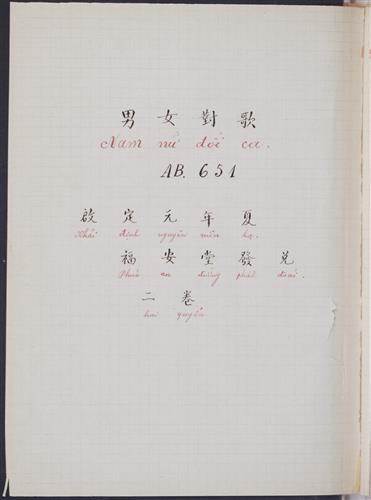 男女對歌
Nam nữ đối ca.
AB. 651
啟定元年夏
Khải định nguyên niên hạ.
福安堂發兌
Phúc an đường phát đoái.
二卷
hai quyển